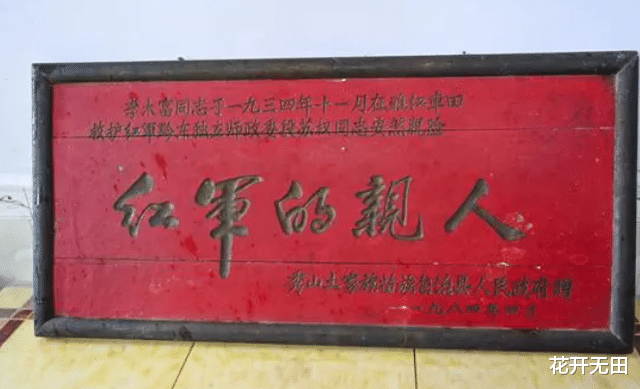 李木富同志于一九三四年十一月在雅江丰田
救护红軍黔东独立师政委段苏权同志安然脱险
红軍的親人
秀山土家族苗族自治县人民政府赠
一九八四年四月
花开无田